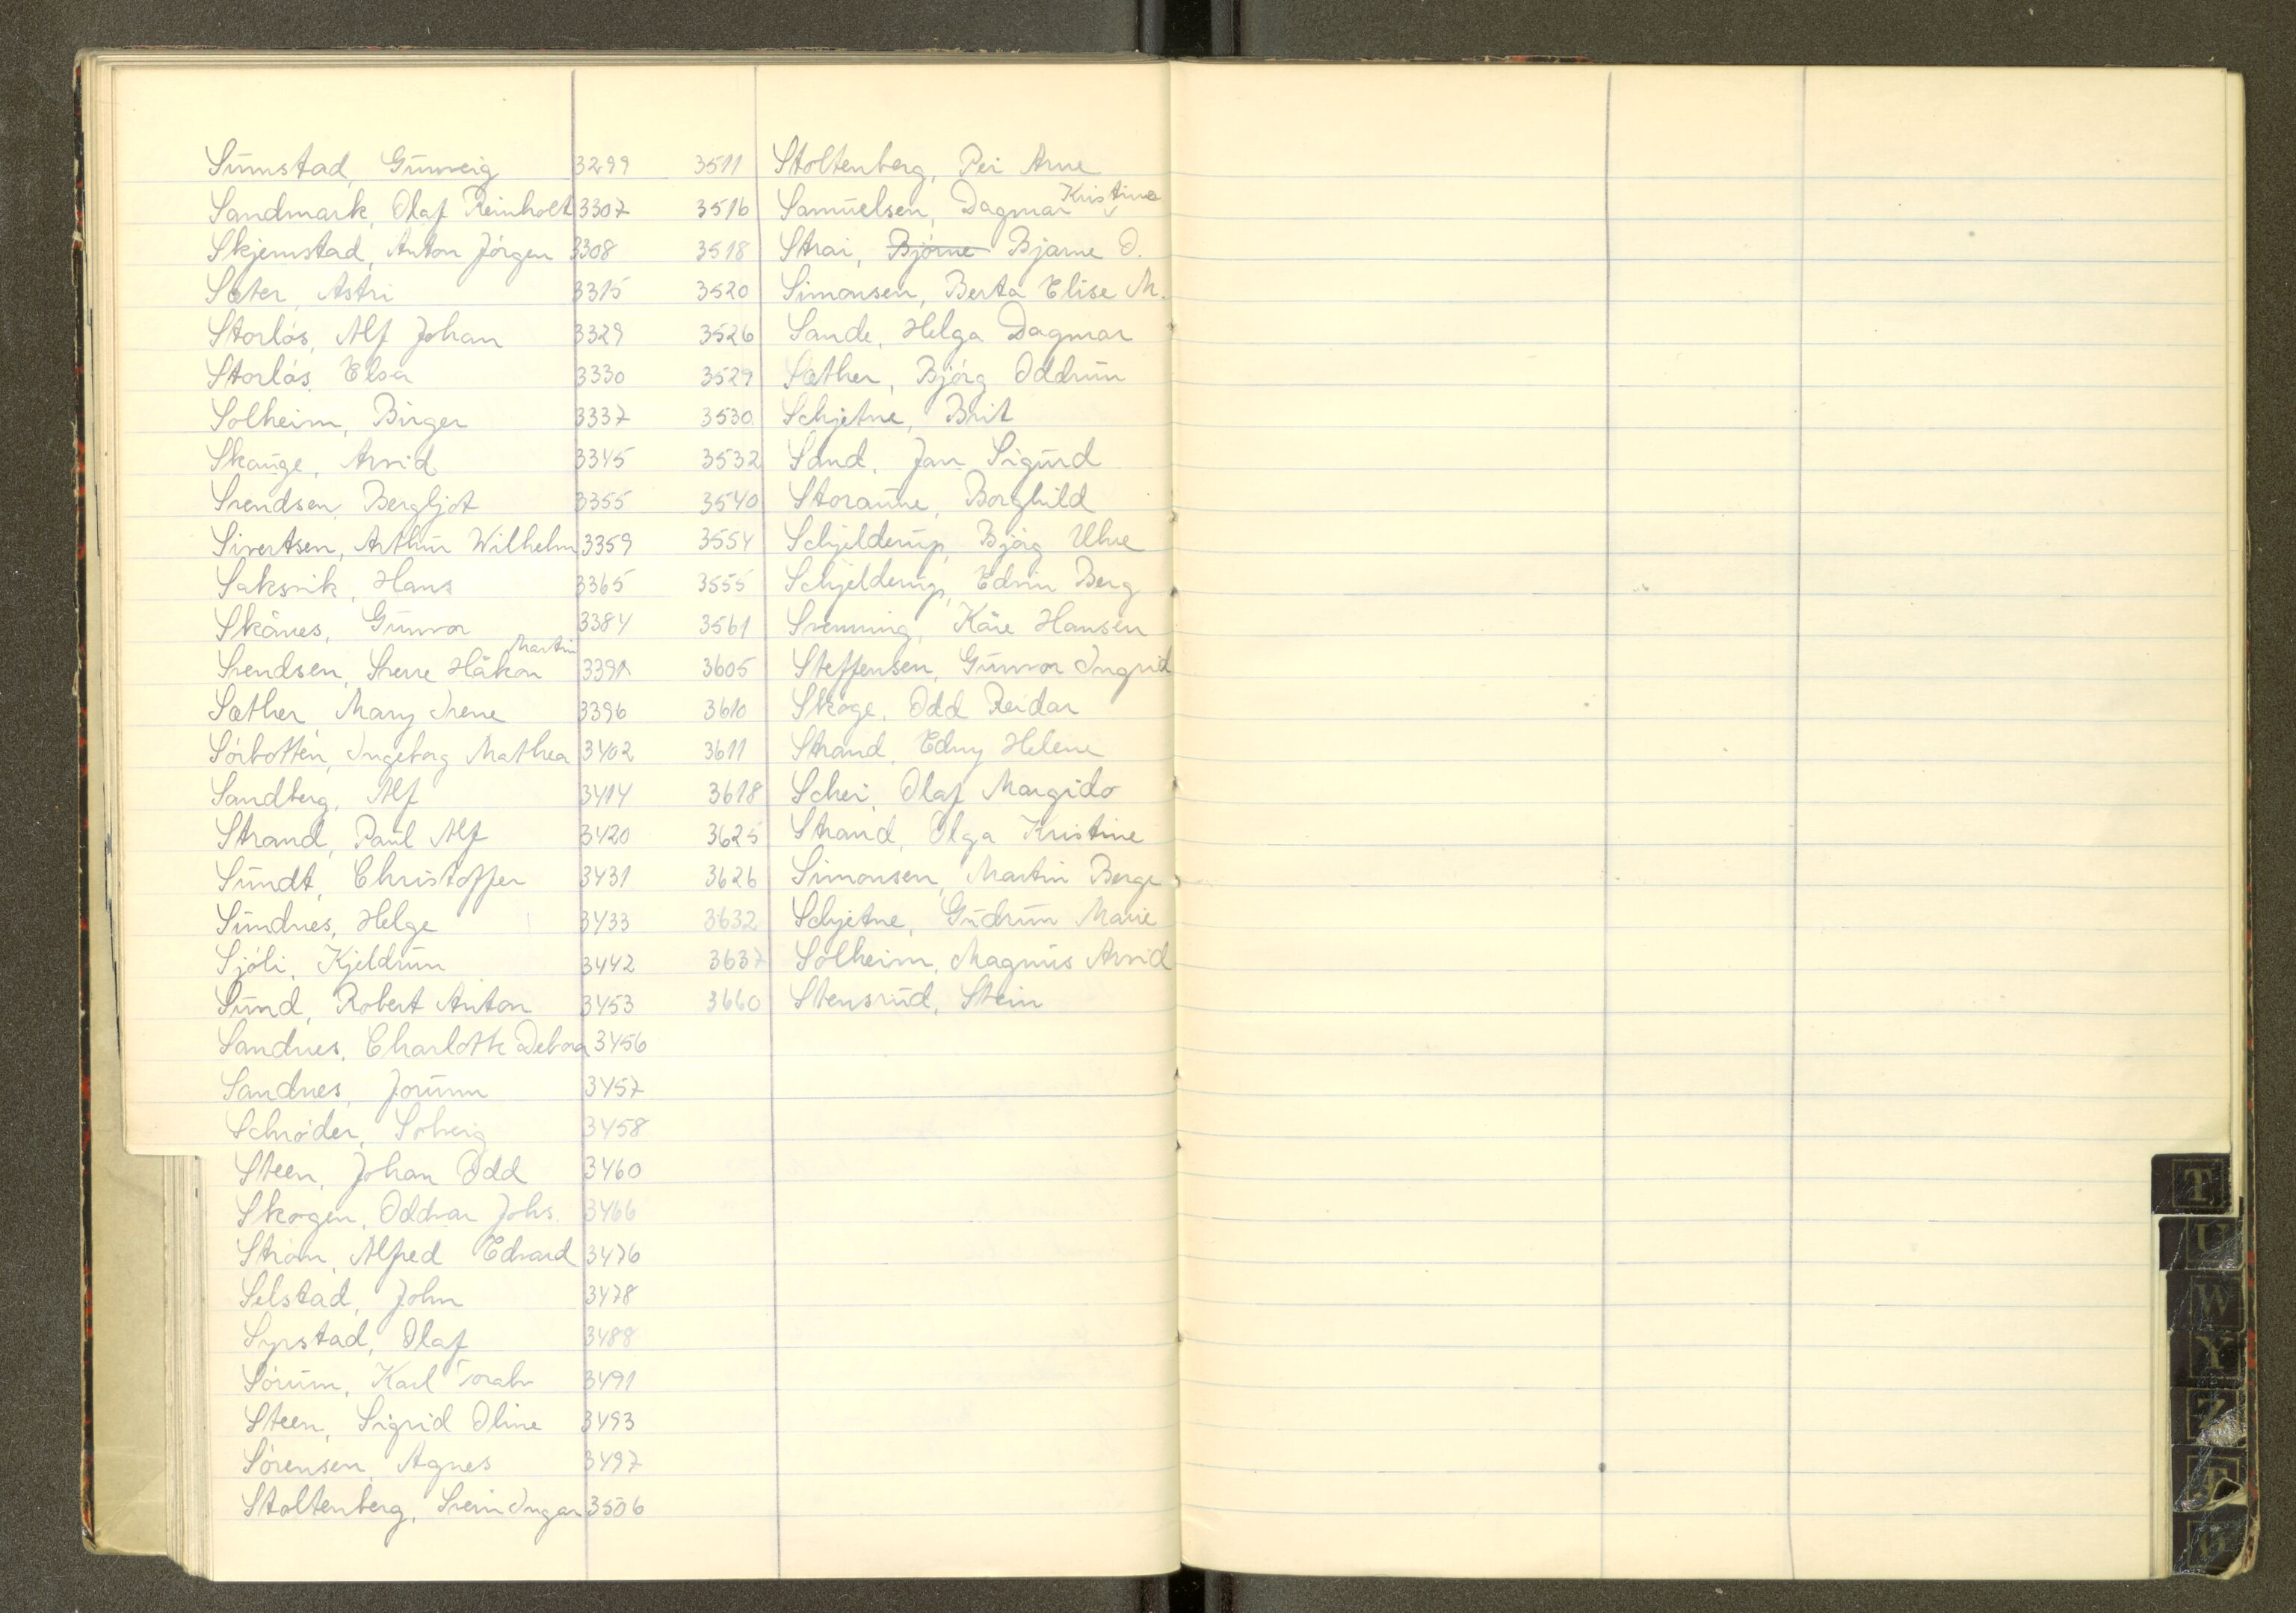 Sunnstad, Gunveig 3299
Sandmark, Olaf Reinholt 3307
Skjemstad, Anton Jörgen 3308
Sæter, Astri 3315
Storlös, Alf Johan 3329
Storlös, Elsa 3330
Solheim, Birger 3337
Skauge, Arvid 3345
Svendsen, Bergljot 3355
Sivertsen, Arthur Wilhelm 3359
Saksvik, Hans 3365
Skånes, Gunvor 3384
Svendsen, Sverre Håkon Martin 3391
Sæther, Mary Irene 3396
Sörbotten, Ingeborg Mathea 3402
Sandberg, Alf 3414
Strand, Paul Alf 3420
Sundt, Christoffer 3431
Sundnes, Helge 3433
Sjöli, Kjeldrun 3442
Sund, Robert Anton 3453
Sandnes, Charlotte Debora 3456
Sandnes, Jorunn 3457
Schröder, Solveig 3458
Steen, Johan Odd 3460
Skogen, Oddvar Johs. 3466
Ström, Alfred Edvard 3476
Selstad, John 3478
Syrstad, Olaf 3488
Sörum, Karl Toralv 3491
Steen, Sigrid Oline 3493
Sörensen, Agnes 3497
Stoltenberg, Svein Ingar 3506
3511 Stoltenberg, Per Arne
3516 Samuelsen, Dagmar Kristine
3518 Strai, Björne Bjarne O.
3520 Simonsen, Berta Elise M.
3526 Sande, Helga Dagmar
3529 Sæther, Björg Oddrun
3530 Schjetne, Brit
3532 Sand, Jan Sigurd
3540 Storaune, Borghild
3554 Schjelderup, Björg
3555 Schjelderup, Edvin Berg
3561 Svenning, Kåre Hansen
3605 Steffensen, Gunvor Ingrid
3610 Skoge, Odd Reidar
3611 Strand, Edny Helene
3618 Schei, Olaf Margido
3625 Strand, Olga Kristine
3626 Simonsen, Martin Berge
3632 Schjetne, Gudrun Marie
3637 Solheim, Magnus Arvid
3660 Stensrud, Stein
T
U
W
Y
Z